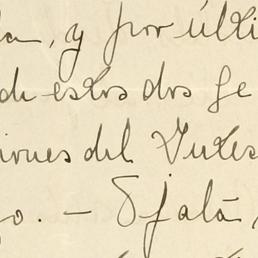 da, y por últi
de estos dos ge
iones del Intes
go. — Ojalá,